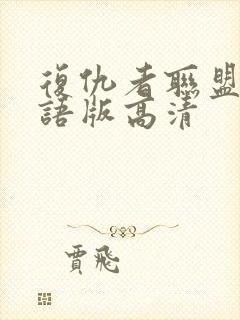 復仇者聯盟
語版高清
賈飛